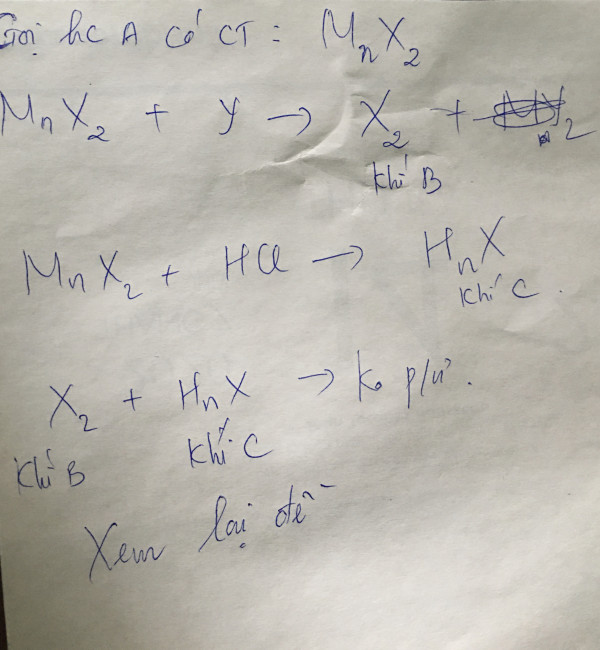 Gọi hc A có CT: MnX2
MnX2 + Y → X2 +
khí B
MnX2 + HCl → HnX
khí C.
X2 + HnX → ko p/ư.
khí B khí C
Xem lại đề